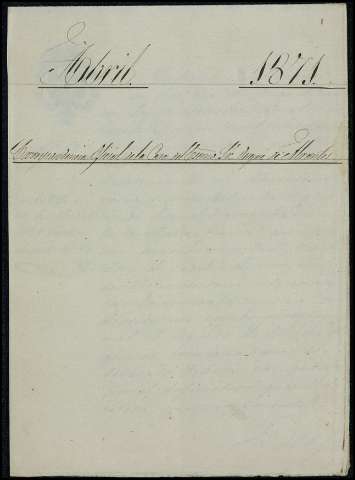 Abril. 1871.
Correspondencia Oficial de la Casa del Excmo Sr. Duque de Abrantes